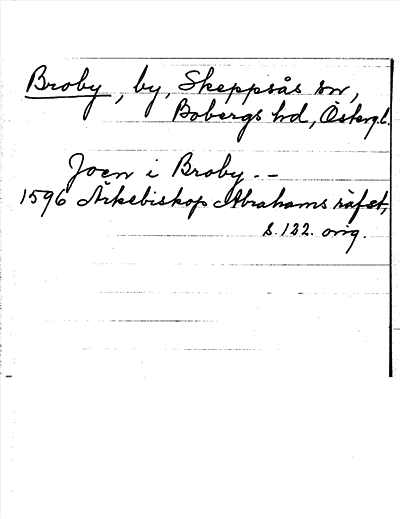 Broby, by, Skeppsås sn,
Bobergs hd, Östergl.
Joen i Broby. --
1596 Ärkebiskop Abrahams räfst,
s. 122. orig.